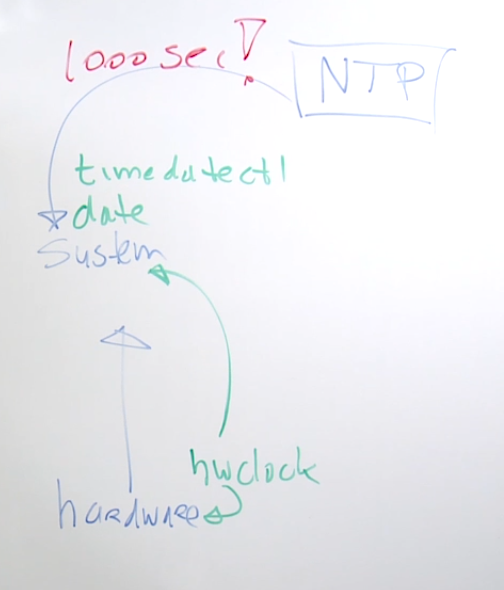 1000 sec!
NTP
timedatectl
date
System
hwclock
hardware